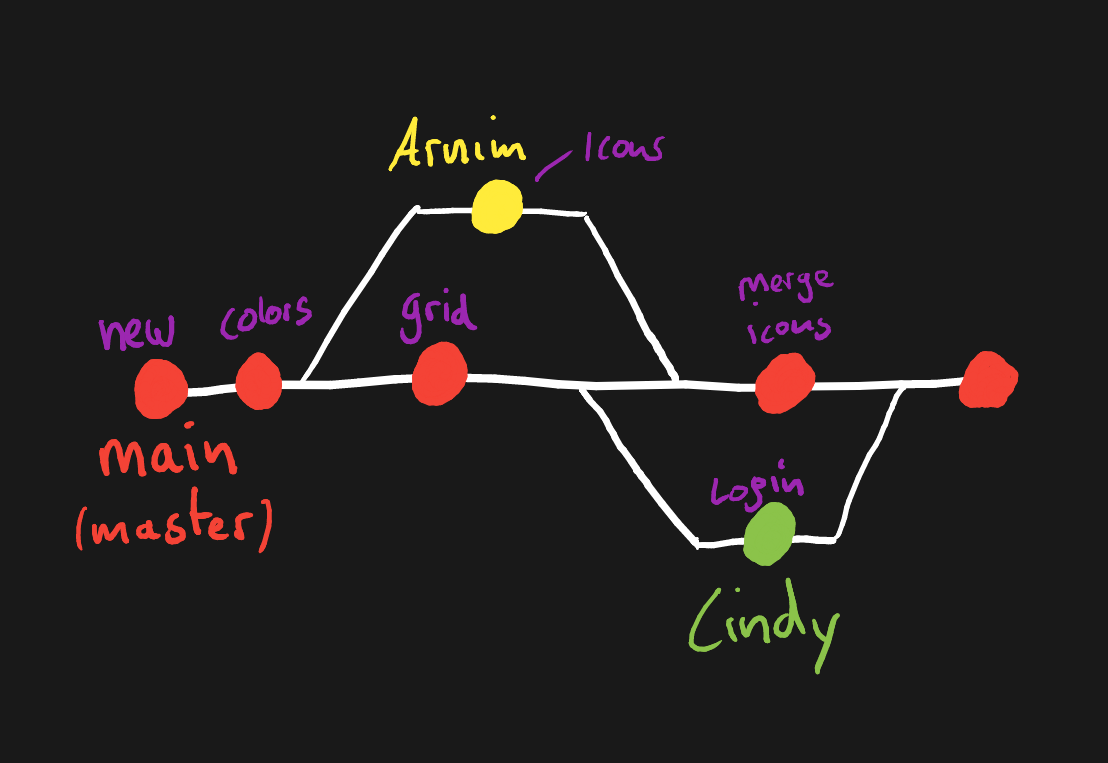 Arnim
Icons
new
colors
grid
merge
icons
main
(master)
Login
Cindy